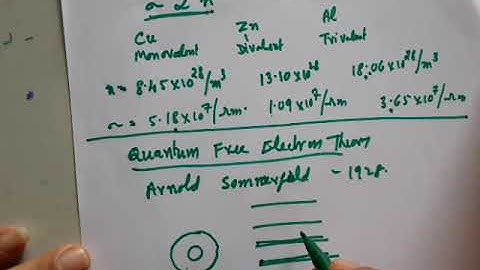 σ α n
Cu Zn Al
Monovalent Divalent Trivalent
n = 8.45×10²⁸/m³ 13.10×10²⁸ 18.06×10²⁸/m³
σ = 5.18×10⁷/Ωm. 1.09×10⁷/Ωm 3.65×10⁷/Ωm
Quantum Free Electron Theory
Arnold Sommerfeld - 1928.